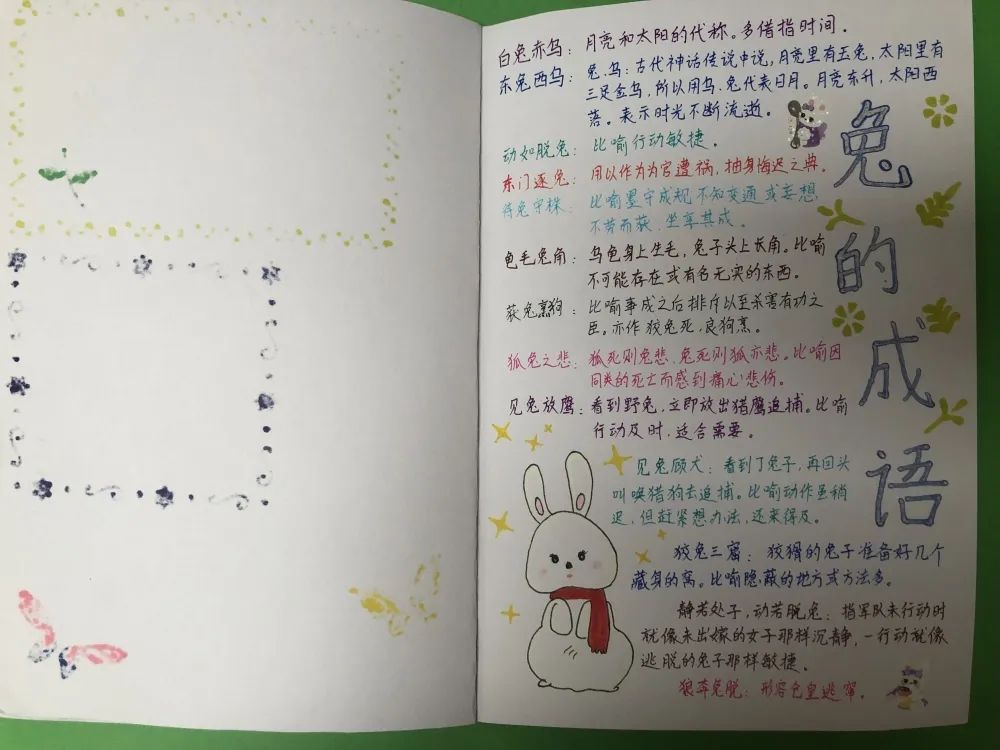 兔的成语
白兔赤乌：月亮和太阳的代称。多借指时间．
东兔西乌：兔．乌：古代神话传说中说，月亮里有玉兔，太阳里有
三足金乌，所以用乌．兔代表日月。月亮东升，太阳西
落。表示时光不断流逝。
动如脱兔：比喻行动敏捷．
东门逐兔：用以作为为官遭祸，抽身悔迟之典．
待兔守株：比喻墨守成规不知变通或妄想
不劳而获．坐享其成．
龟毛兔角：乌龟身上生毛，兔子头上长角。比喻
不可能存在或有名无实的东西．
获兔烹狗：比喻事成之后排斥以至杀害有功之
臣。亦作狡兔死，良狗烹。
狐兔之悲：狐死则兔悲．兔死则狐亦悲。比喻因
同类的死亡而感到痛心悲伤。
见兔放鹰：看到野兔，立即放出猎鹰追捕。比喻
行动及时，适合需要。
见兔顾犬：看到了兔子，再回头
叫唤猎狗去追捕。比喻动作虽稍
迟，但赶紧想办法，还来得及。
狡兔三窟：狡猾的兔子准备好几个
藏身的窝。比喻隐蔽的地方或方法多。
静若处子，动若脱兔：指军队未行动时
就像未出嫁的女子那样沉静，一行动就像
逃脱的兔子那样敏捷．
狼奔兔脱：形容仓皇逃窜．